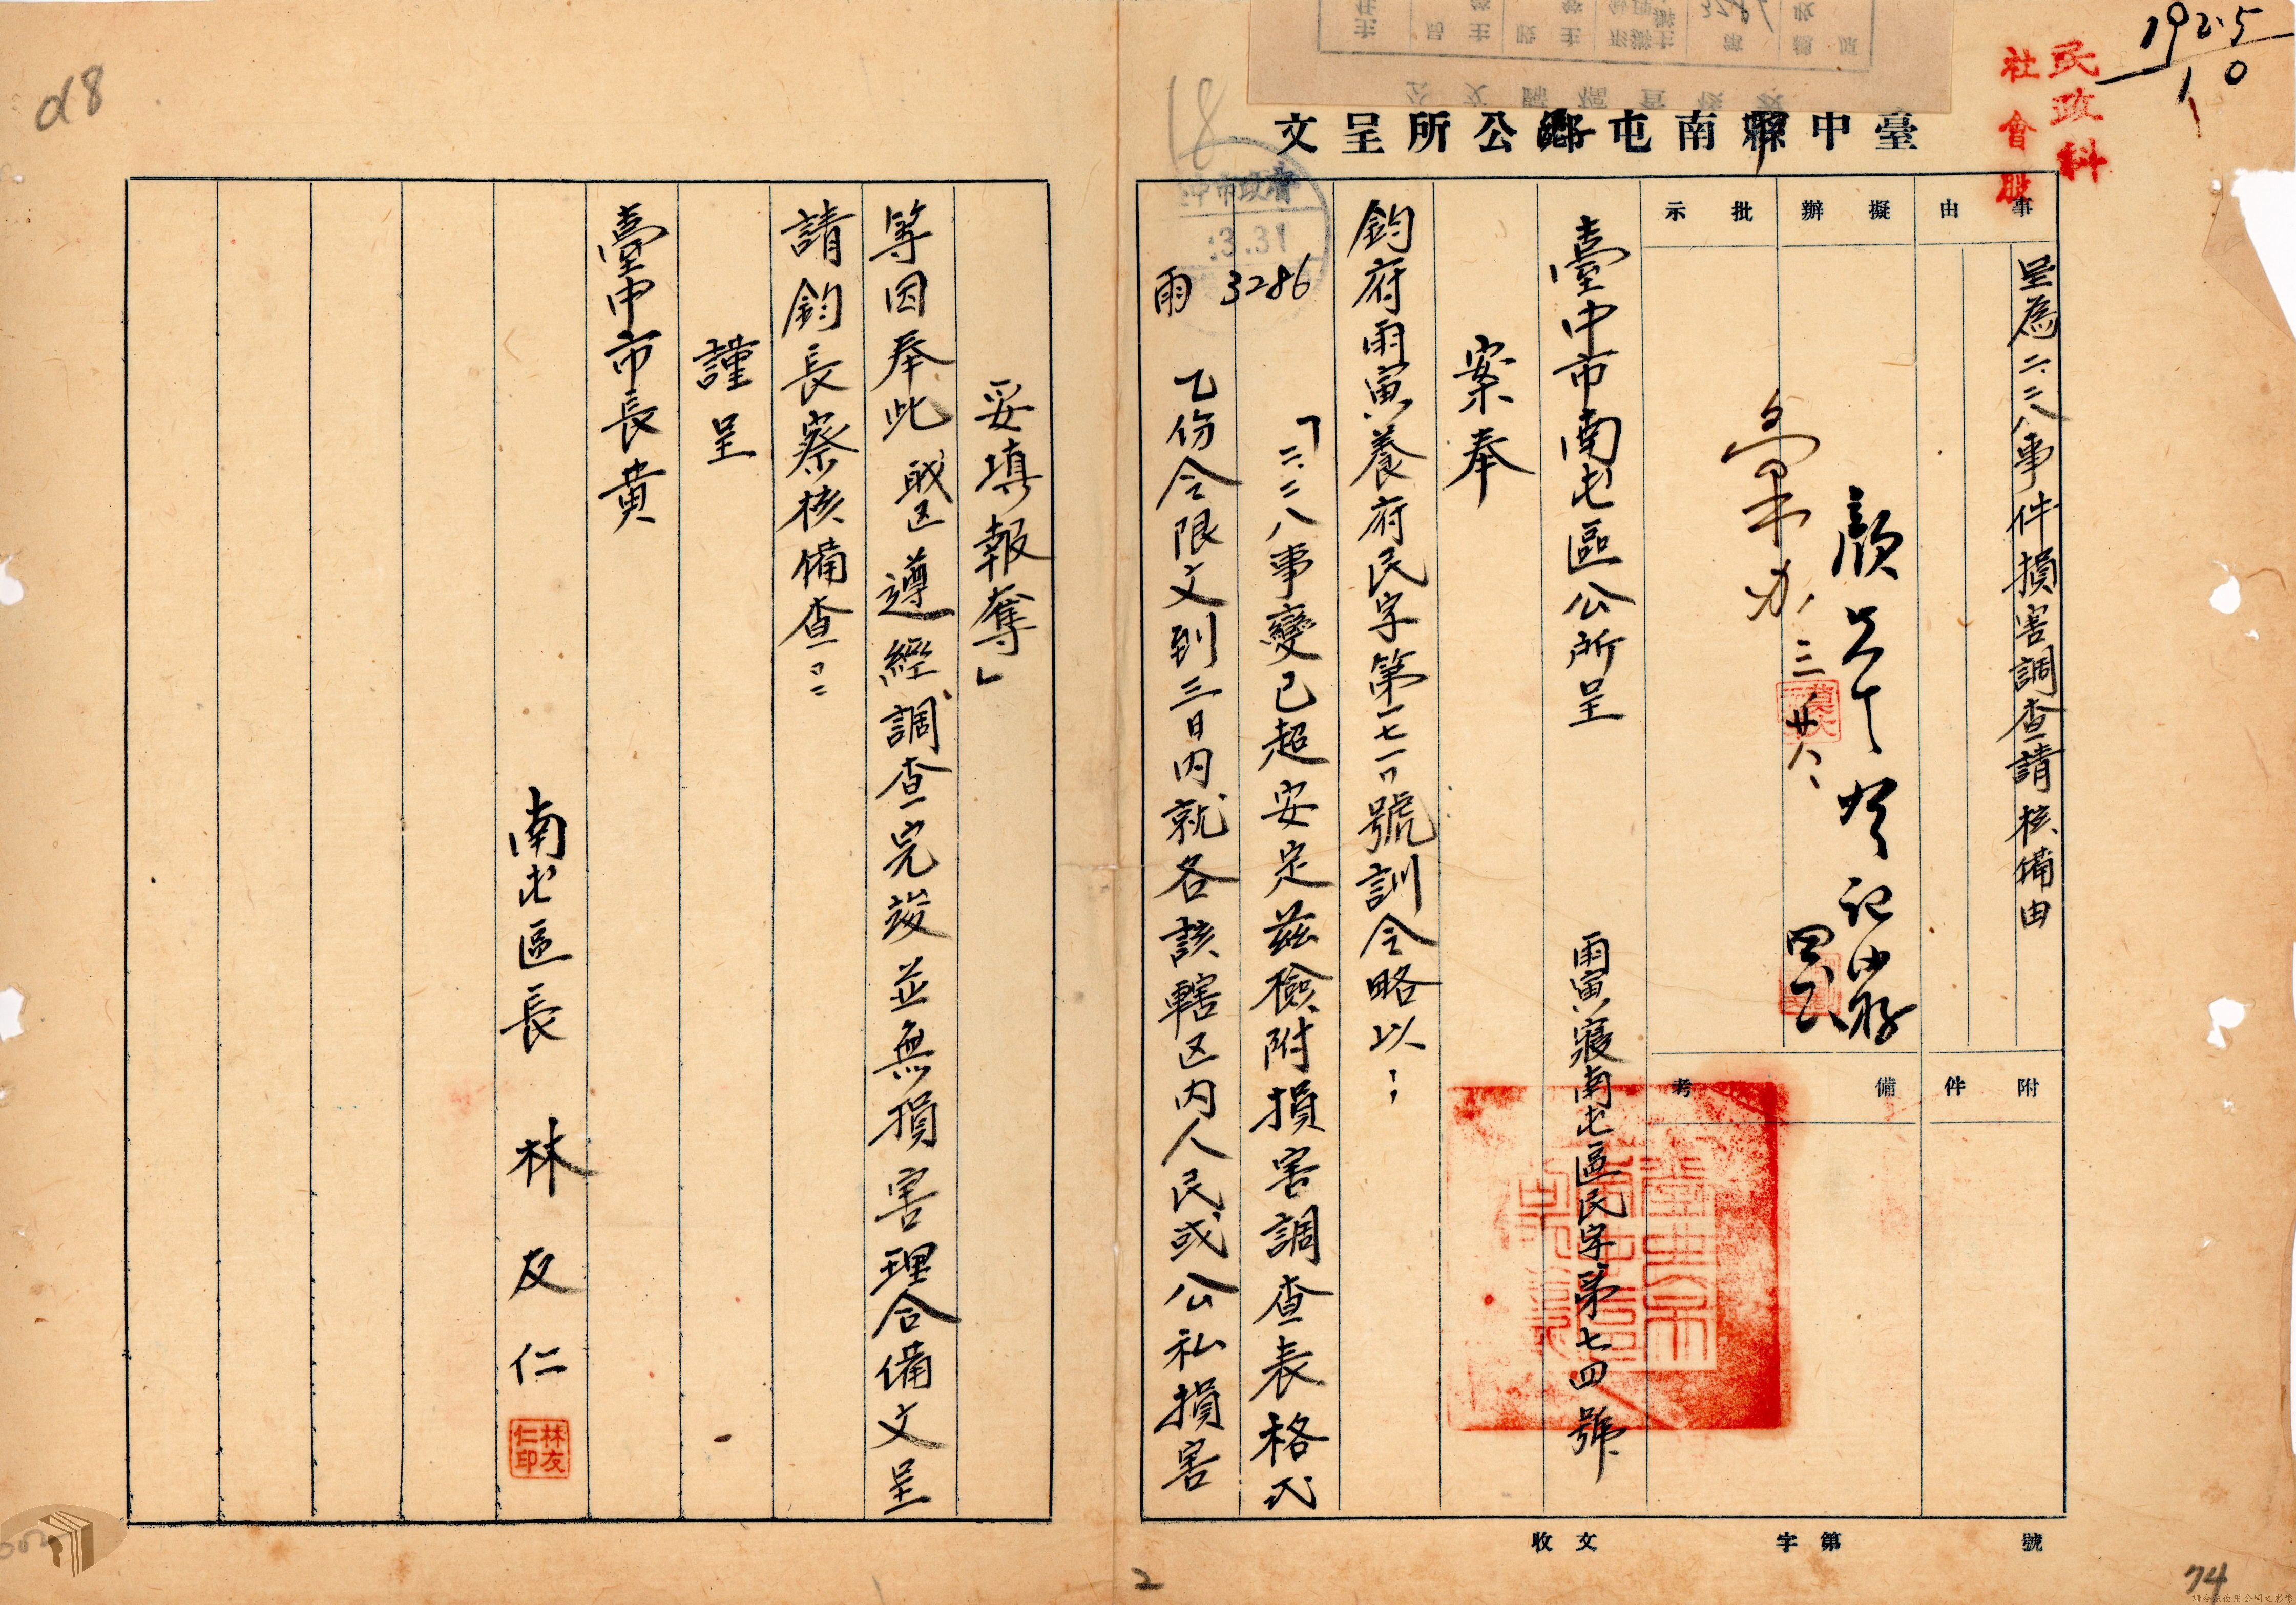 192.5
10
民政科
社會股
臺中縣南屯鄉公所呈文
事由
呈為二.二八事件損害調查請核備由
擬辦
批示
附件
備考
三 廿八
臺中市南屯區公所呈
雨寅寢南屯區民字第七四號
案奉
鈞府雨寅養府民字第一七一〇號訓令略以：
「二.二八事變已趨安定茲檢附損害調查表格式
乙份令限文到三日內就各該轄区内人民或公私損害
雨 3286
3.31
妥填報奪」
等因奉此 戝区遵經調查完竣並無損害理合備文呈
請鈞長察核備查：
謹呈
臺中市長黄
南屯區長 林友仁
林友仁印
收文
字第
號
18
d8
2
74